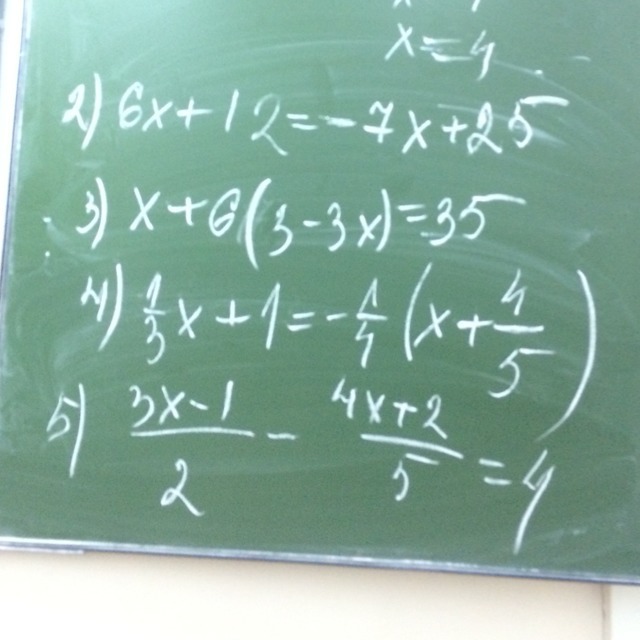 x = 4
2) 6x + 12 = -7x + 25
3) x + 6(3 - 3x) = 35
4) 1/3 x + 1 = - 1/4 (x + 4/5)
5) 3x - 1 / 2 - 4x + 2 / 5 = 4